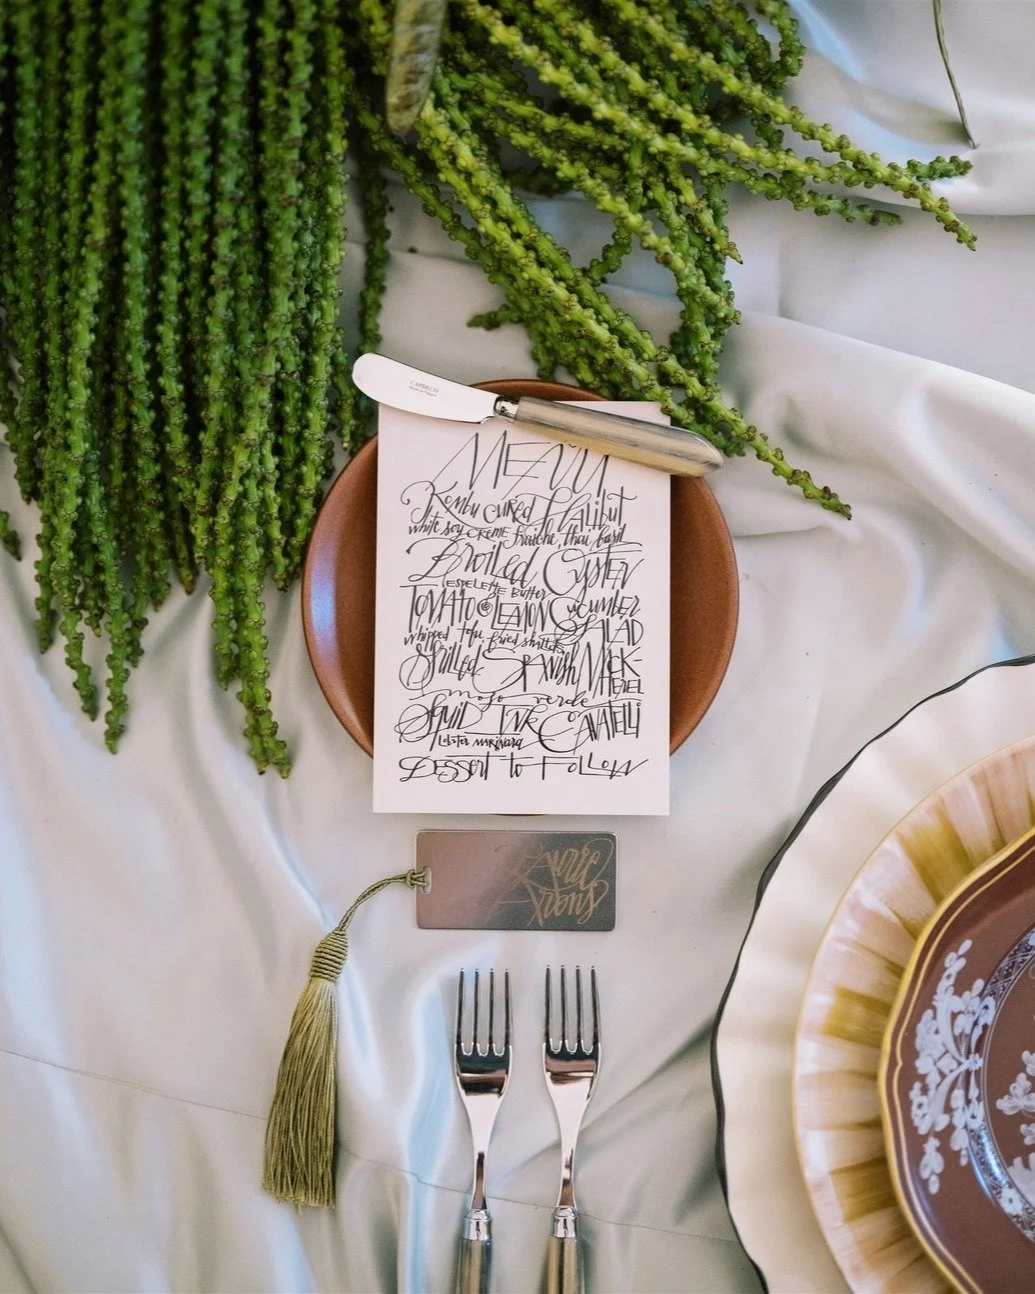 MENU
Kombu cured Halibut
white soy creme fraiche, thai basil
Broiled Oyster
ESPELETTE Butter
TOMATO @ LEMON CUCUMBER
SALAD
whipped tofu, fried shallots
Grilled Spanish MACK-
EREL
mojo verde
Squid Ink CAVATELLI
LOBSTER MARINARA
DESSERT to FOLLOW